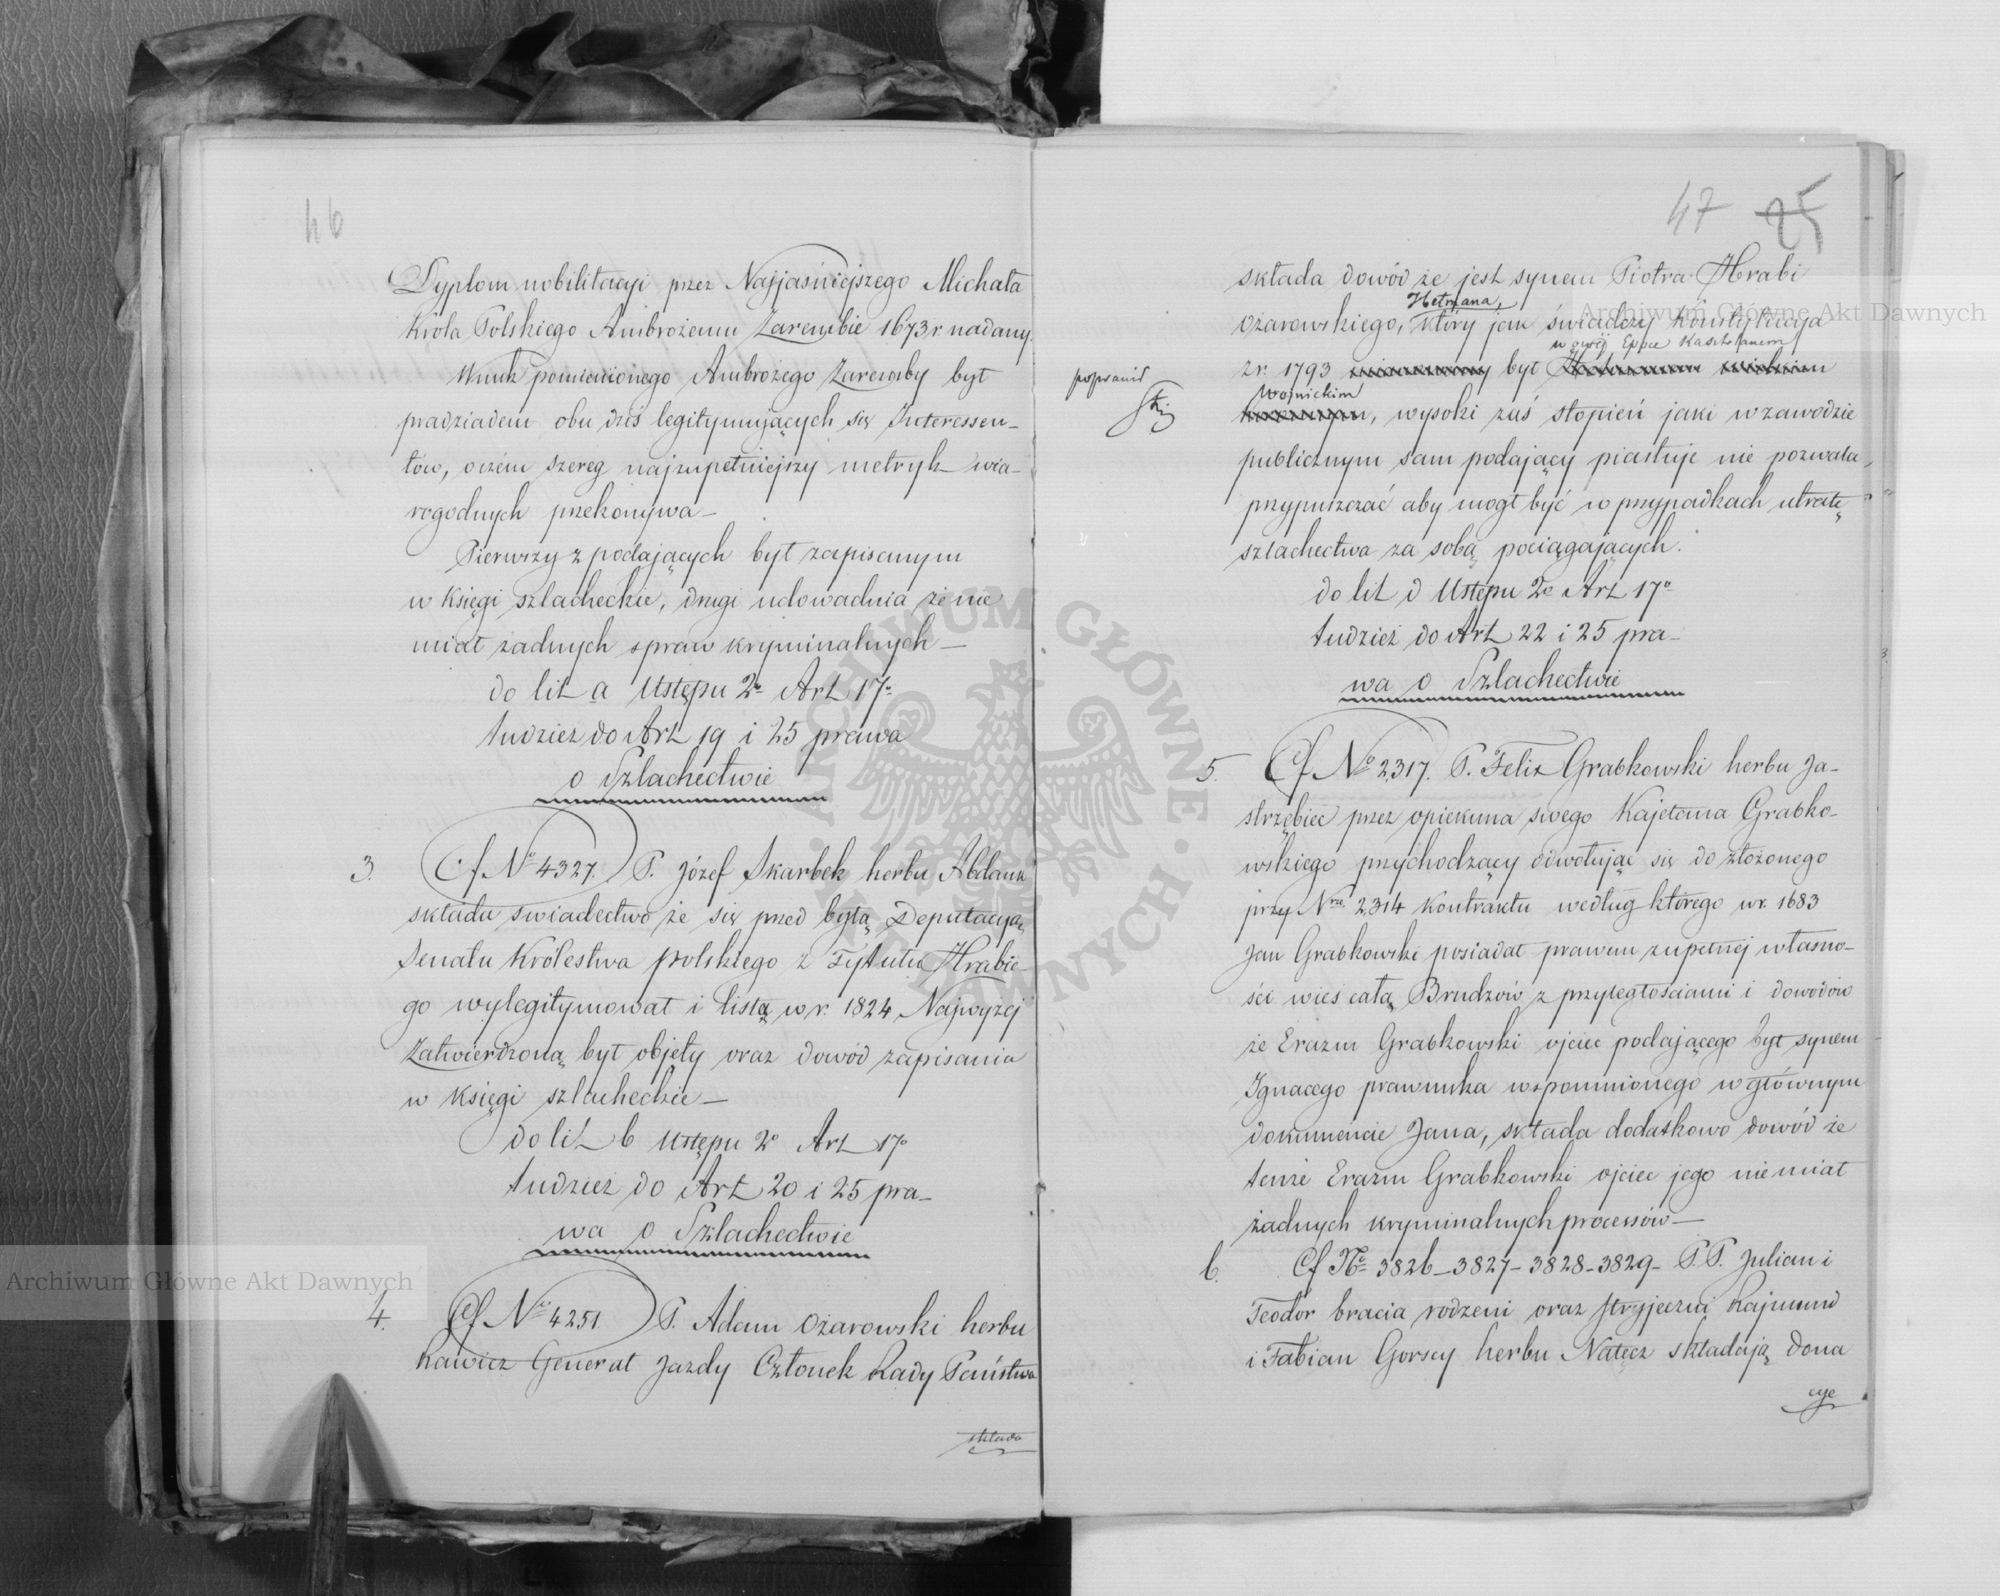 46
Dyplom nobilitacyi przez Najjaśniejszego Michała
Króla Polskiego Ambrożemu Zarembie 1673 r. nadany.
Wnuk pomienionego Ambrożego Zaremby był
pradziadem obu dziś legitymujących się Interessen-
tów, o czém szereg najzupełniejszy metryk wia-
rogodnych przekonywa —
Pierwszy z podających był zapisanym
w księgi szlacheckie, drugi udowadnia że nie
miał żadnych spraw kryminalnych —
do lit a Ustępu 2o Art 17o
tudzież do Art 19 i 25 prawa
o Szlachectwie
3. Cf No 4327. P. Józef Skarbek herbu Abdank
składa świadectwo że się przed byłą Deputacyą
Senatu Królestwa polskiego z Tytułu Hrabie-
go wylegitymował i listą w r. 1824 Najwyżej
Zatwierdzoną był objęty oraz dowód zapisania
w księgi szlacheckie —
do lit b Ustępu 2o Art 17o
tudzież do Art 20 i 25 pra-
wa o Szlachectwie
4. Cf No 4251. P. Adam Ożarowski herbu
Rawicz Generał Jazdy Członek Rady Państwa
składa
47 25
składa dowód że jest synem Piotra Hrabi
Hetmana,
Ożarowskiego, który jak świadczy Konstytucya
w owej Epoce Kasztelanem
z r. 1793 był
poprawił
Wojnickim
, wysoki zaś stopień jaki w zawodzie
publicznym sam podający piastuje nie pozwala,
przypuszczać aby mógł być w przypadkach utratę
szlachectwa za sobą pociągających.
do lit d Ustępu 2o Art 17o
tudzież do Art 22 i 25 pra-
wa o Szlachectwie
5. Cf No 2317. P. Felix Grabkowski herbu Ja-
strzębiec przez opiekuna swego Kajetana Grabko-
wskiego przychodzący odwołując się do złożonego
przy Nrze 2314 Kontraktu według którego w r. 1683
Jan Grabkowski posiadał prawem zupełnej własno-
ści wieś całą Brudzów z przyległościami i dowodów
że Erazm Grabkowski ojciec podającego był synem
Ignacego prawnuka wspomnionego w głównym
dokumencie Jana, składa dodatkowo dowód że
tenże Erazm Grabkowski ojciec jego nie miał
żadnych kryminalnych processów —
6. Cf No 3826 - 3827 - 3828 - 3829 - P.P. Julian i
Teodor bracia rodzeni oraz stryjeczni Rajmund
i Fabian Gorscy herbu Nałęcz składają Dona
cye
Archiwum Główne Akt Dawnych
Archiwum Główne Akt Dawnych
ARCHIWUM GŁÓWNE AKT DAWNYCH